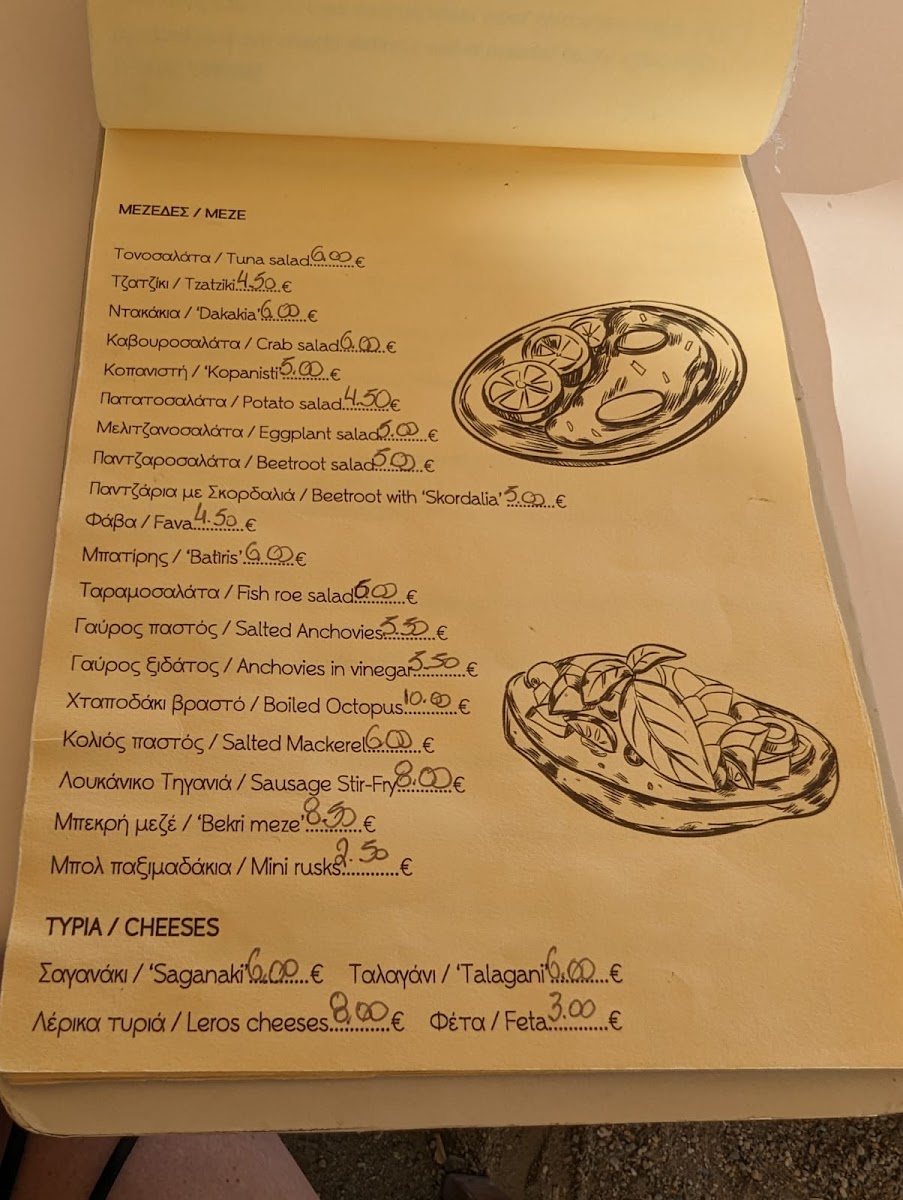 ΜΕΖΕΔΕΣ / MEZE
Τονοσαλάτα / Tuna salad 6.00 €
Τζατζίκι / Tzatziki 4.50 €
Ντακάκια / 'Dakakia' 6.00 €
Καβουροσαλάτα / Crab salad 6.00 €
Κοπανιστή / 'Kopanisti' 5.00 €
Πατατοσαλάτα / Potato salad 4.50 €
Μελιτζανοσαλάτα / Eggplant salad 5.00 €
Παντζαροσαλάτα / Beetroot salad 5.00 €
Παντζάρια με Σκορδαλιά / Beetroot with 'Skordalia' 5.00 €
Φάβα / Fava 4.50 €
Μπατίρης / 'Batiris' 6.00 €
Ταραμοσαλάτα / Fish roe salad €
Γαύρος παστός / Salted Anchovies 5.50 €
Γαύρος ξιδάτος / Anchovies in vinegar 5.50 €
Χταποδάκι βραστό / Boiled Octopus 10.00 €
Κολιός παστός / Salted Mackerel 6.00 €
Λουκάνικο Τηγανιά / Sausage Stir-Fry 8.00 €
Μπεκρή μεζέ / 'Bekri meze' 8.50 €
Μπολ παξιμαδάκια / Mini rusks 2.50 €
ΤΥΡΙΑ / CHEESES
Σαγανάκι / 'Saganaki' 6.00 € Ταλαγάνι / 'Talagani' 6.00 €
Λέρικα τυριά / Leros cheeses 8.00 € Φέτα / Feta 3.00 €